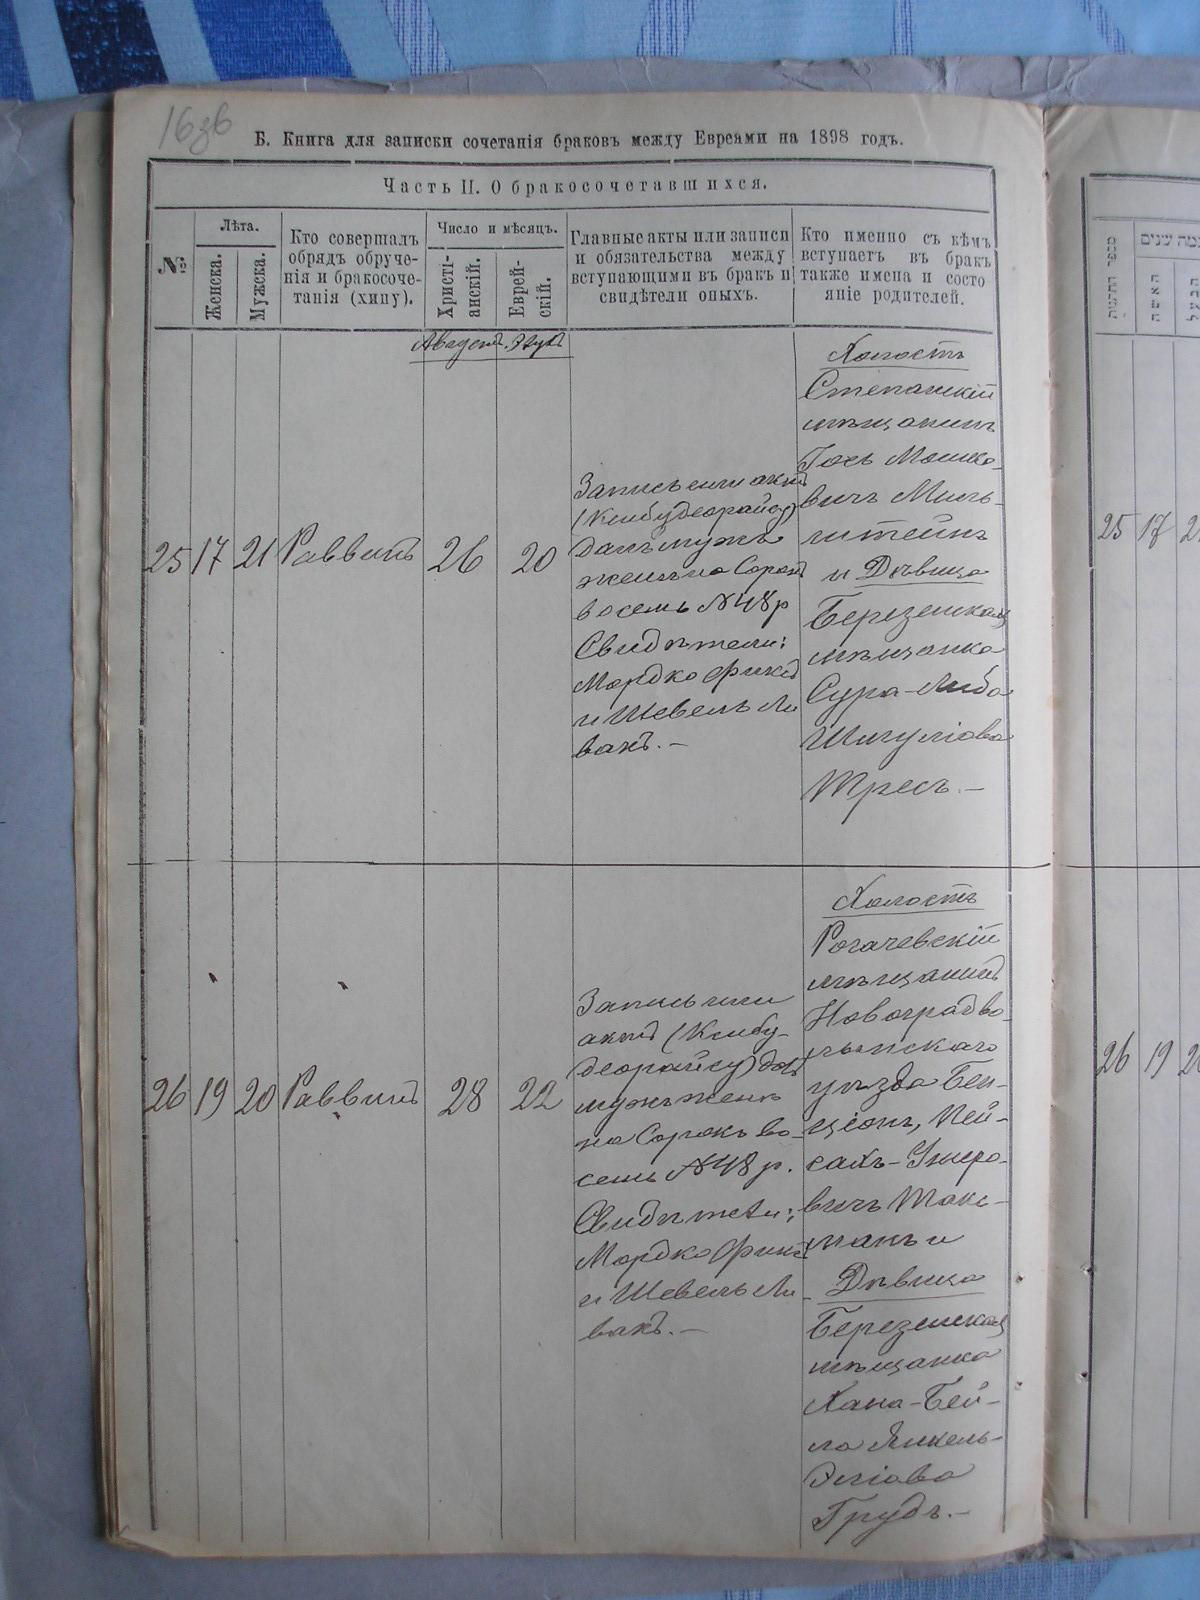 16зв
Б. Книга для записки сочетанія браковъ между Евреями на 1898 годъ.
Часть II. О бракосочетавшихся.
№
Лѣта.
Женска.
Мужска.
Кто совершалъ
обрядъ обруче-
нія и бракосоче-
танія (хипу).
Число и мѣсяцъ.
Христі-
анскій.
Еврей-
скій.
Главные акты или записи
и обязательства между
вступающими въ бракъ и
свидѣтели оныхъ.
Кто именно съ кѣмъ
вступаетъ въ бракъ
также имена и состо
яніе родителей.
25
17
21
Раввинъ
26
20
Запись или актъ
(Ксибудеорайсу)
далъ мужъ
женѣ на Сорокъ
восемь №48 р
Свидѣтели:
Мордко Фикъ
и Шевель Ли
вакъ.—
Холостъ
Степанскій
мѣщанинъ
Мошко-
вичъ Миль-
штейнъ
и Дѣвица
Березенская
мѣщанка
Сура-Либа
Шмуліова
Тресъ.—
26
19
20
Раввинъ
28
22
Запись или
актъ (Ксибу-
деорайсу) далъ
мужъ женѣ
на Сорокъ во-
семь №48 р.
Свидѣтели:
Мордко Фикъ
и Шевель Ли
вакъ.—
Холостъ
Рогачевскій
мѣщанинъ
Новоградво-
лынскаго
уѣзда Бен-
ціонъ, Пей-
сахъ-Ушеро-
вичъ Токс-
манъ и
Дѣвица
Березенская
мѣщанка
Хана-Бей-
ла Янкель-
Эліова
Грудъ.—
25 17
26 19